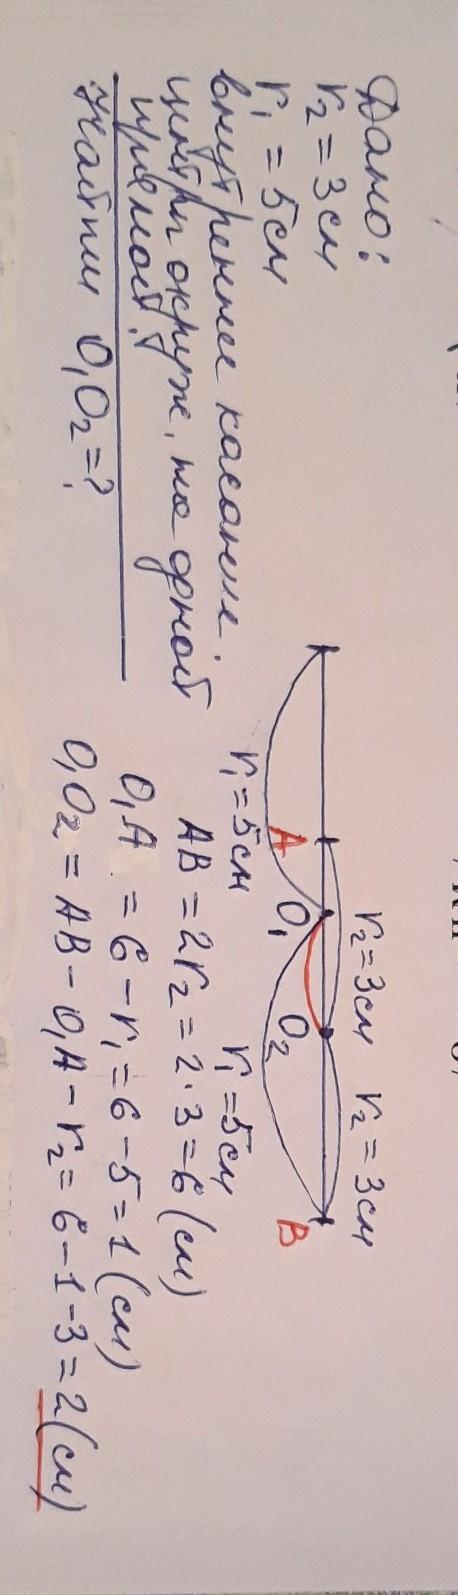 Дано:
r₂ = 3см
r₁ = 5см
внутреннее касание.
центры окруж. на одной
прямой.
Найти O₁O₂ = ?
r₂ = 3см r₂ = 3см
A O₁ O₂ B
r₁ = 5см r₁ = 5см
AB = 2r₂ = 2·3 = 6 (см)
O₁A = 6 - r₁ = 6 - 5 = 1 (см)
O₁O₂ = AB - O₁A - r₂ = 6 - 1 - 3 = 2 (см)